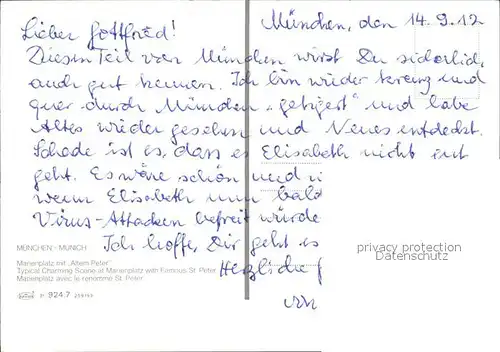 München, den 14.9.12
Lieber Gottfried!
Diesen Teil von München wirst Du sicherlich
auch gut kennen. Ich bin wieder kreuz und
quer durch München „getigert“ und habe
Altes wieder gesehen und Neues entdeckt.
Schade ist es, dass es Elisabeth nicht gut
geht. Es wäre schön und
wenn Elisabeth nun bald
Virus-Attacken befreit würde
Ich hoffe, Dir geht es
Herzliche
MÜNCHEN - MUNICH
Marienplatz mit „Altem Peter“
Typical Charming Scene at Marienplatz with Famous St. Peter
Marienplatz avec le renommé St. Peter
924.7
privacy protection
Datenschutz